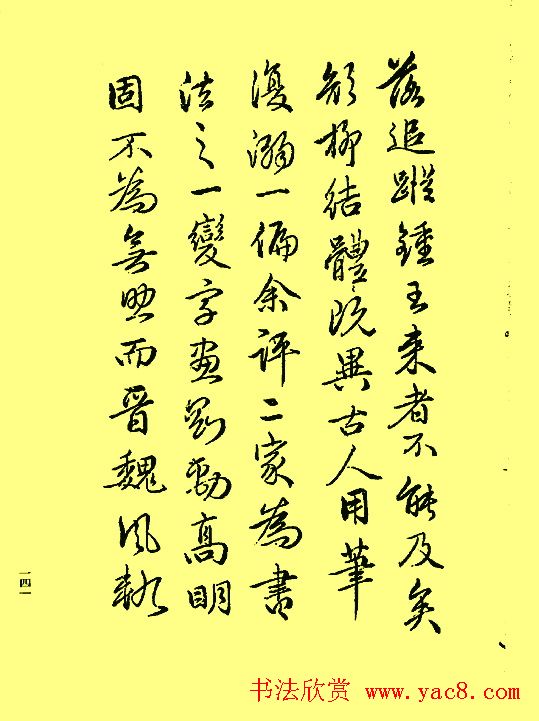 落追蹤鍾王来者不能及矣
顏柳結體既異古人用筆
復溺一偏余評二家為書
法之一變字畫剛勁高明
固不為無而晋魏風軌
一四一
书法欣赏 www.yac8.com